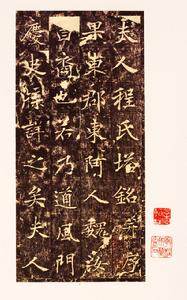 夫人程氏塔銘并序
果東郡東阿人魏
昱裔也若乃道風門
慶史牒詳之矣夫人